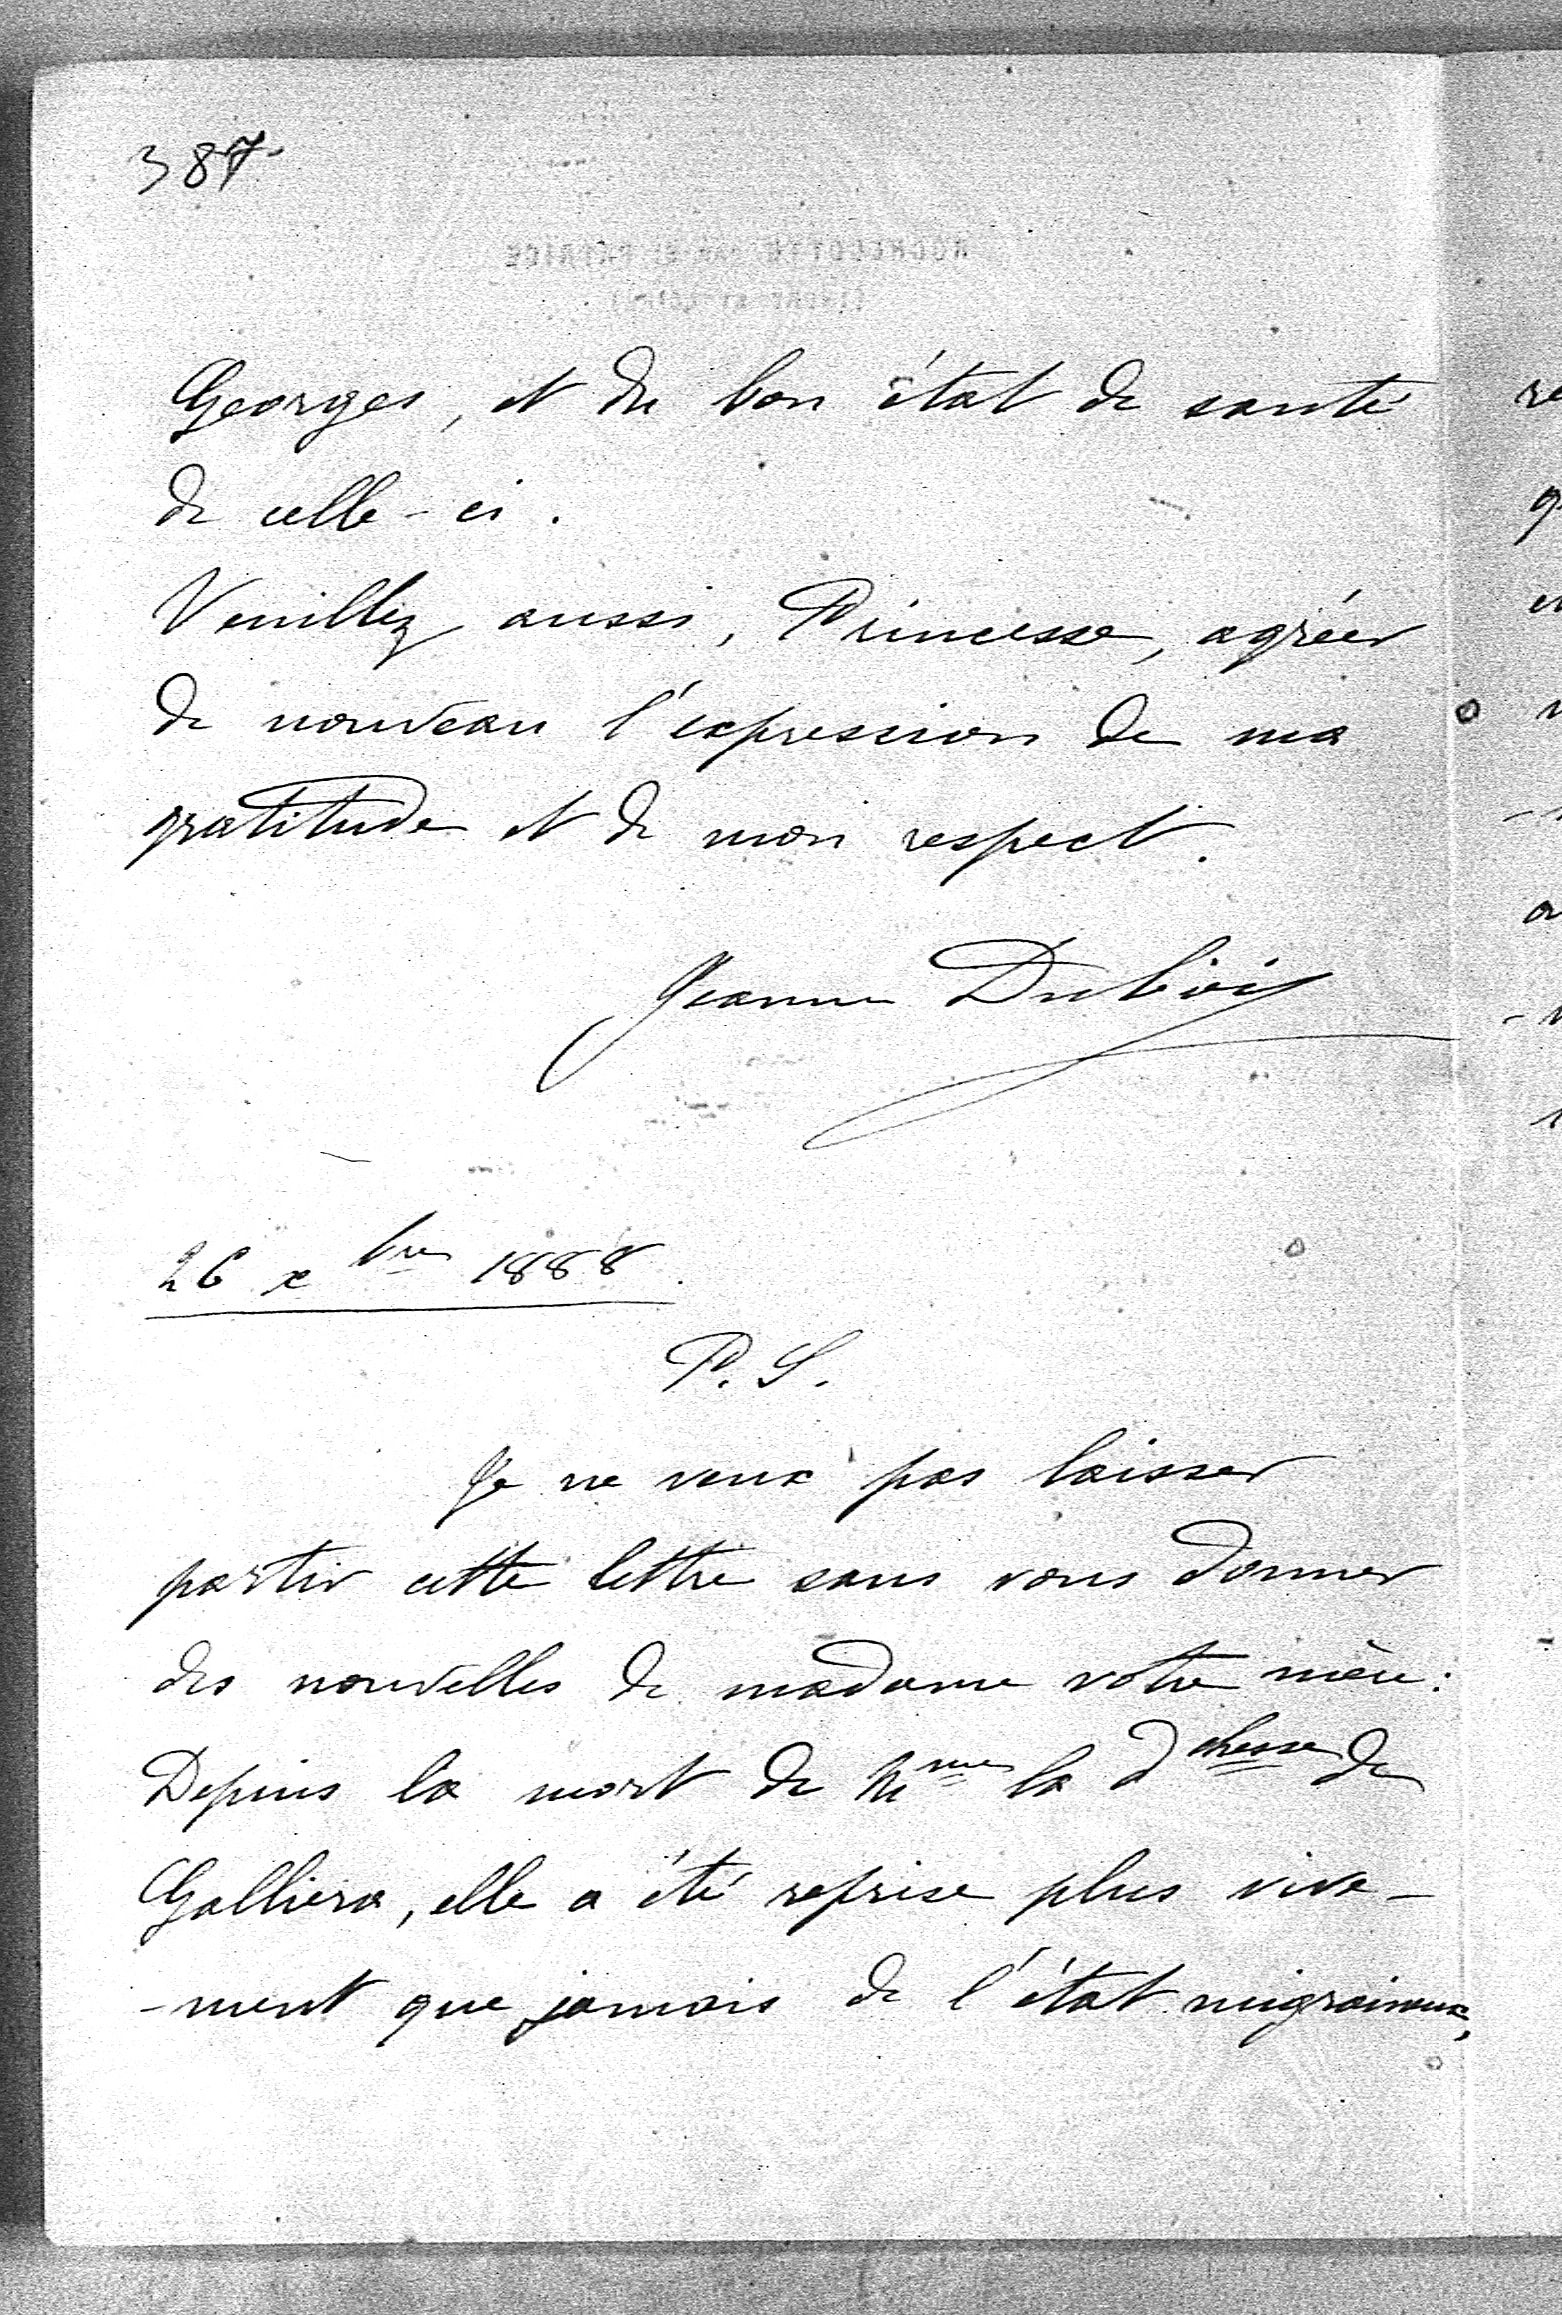 387
Georges, et du bon état de santé
de celle-ci.
Veuillez aussi, Princesse, agréer
de nouveau l'expression de ma
gratitude et de mon respect.
Jeanne Dubois
26 xbre 1888.
P. S.
Je ne veux pas laisser
partir cette lettre sans vous donner
des nouvelles de madame votre mère:
Depuis la mort de Mme la dchesse de
Galliera, elle a été reprise plus vive-
-ment que jamais de l'état migraineux,